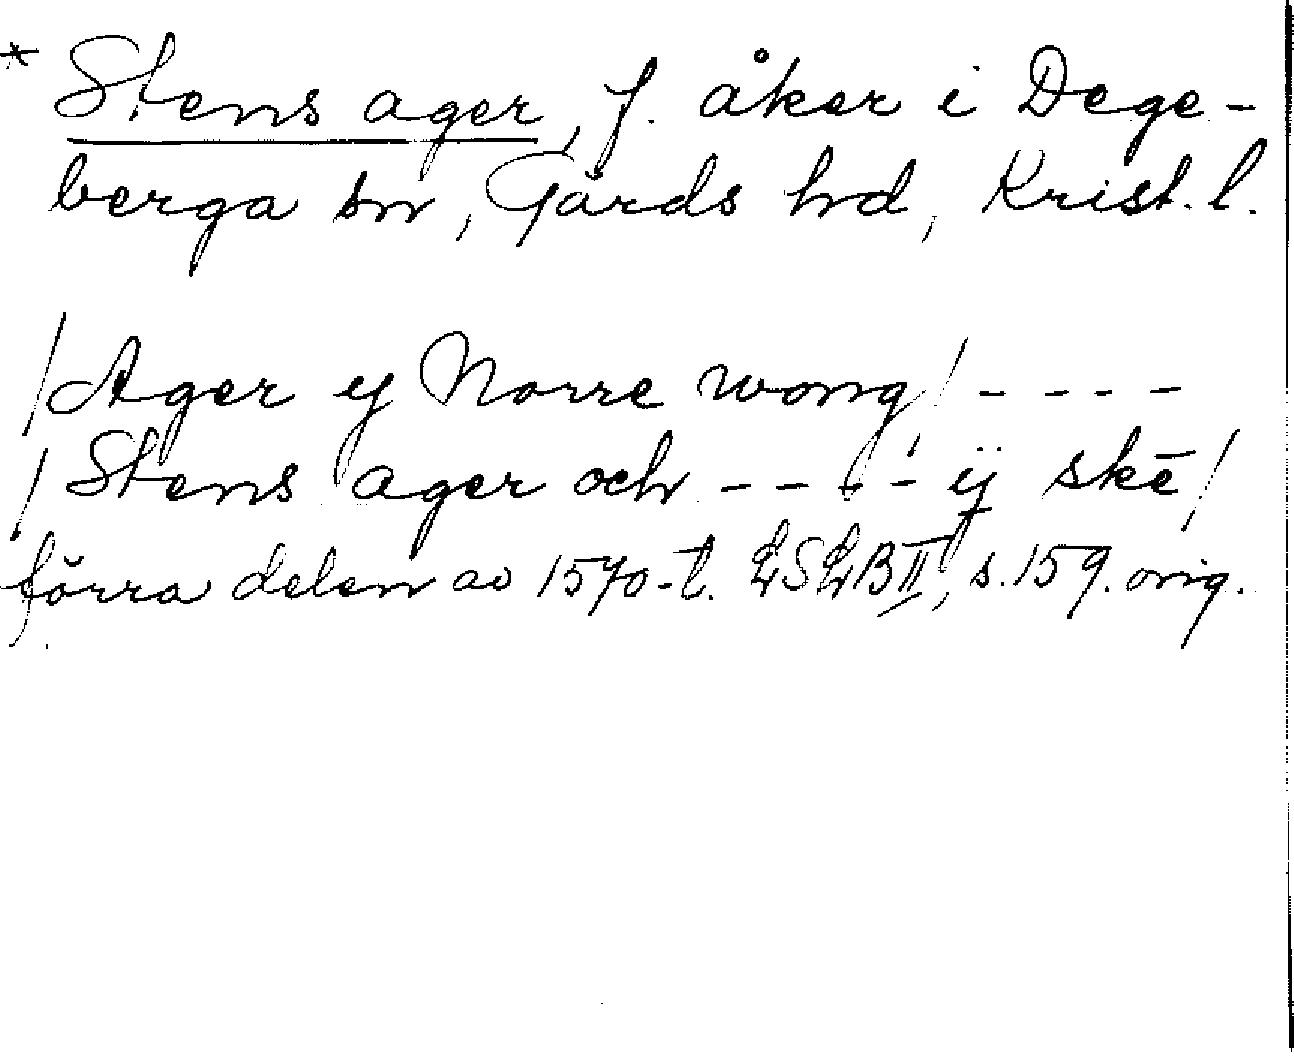 * Stens ager, f. åker i Dege-
berga sn, Gärds hd, Krist. l.
/Ager y Norre wong/ - - - -
/Stens ager och - - - - ij skē/
förra delen av 1570-t. LSLB II, s. 159. orig.